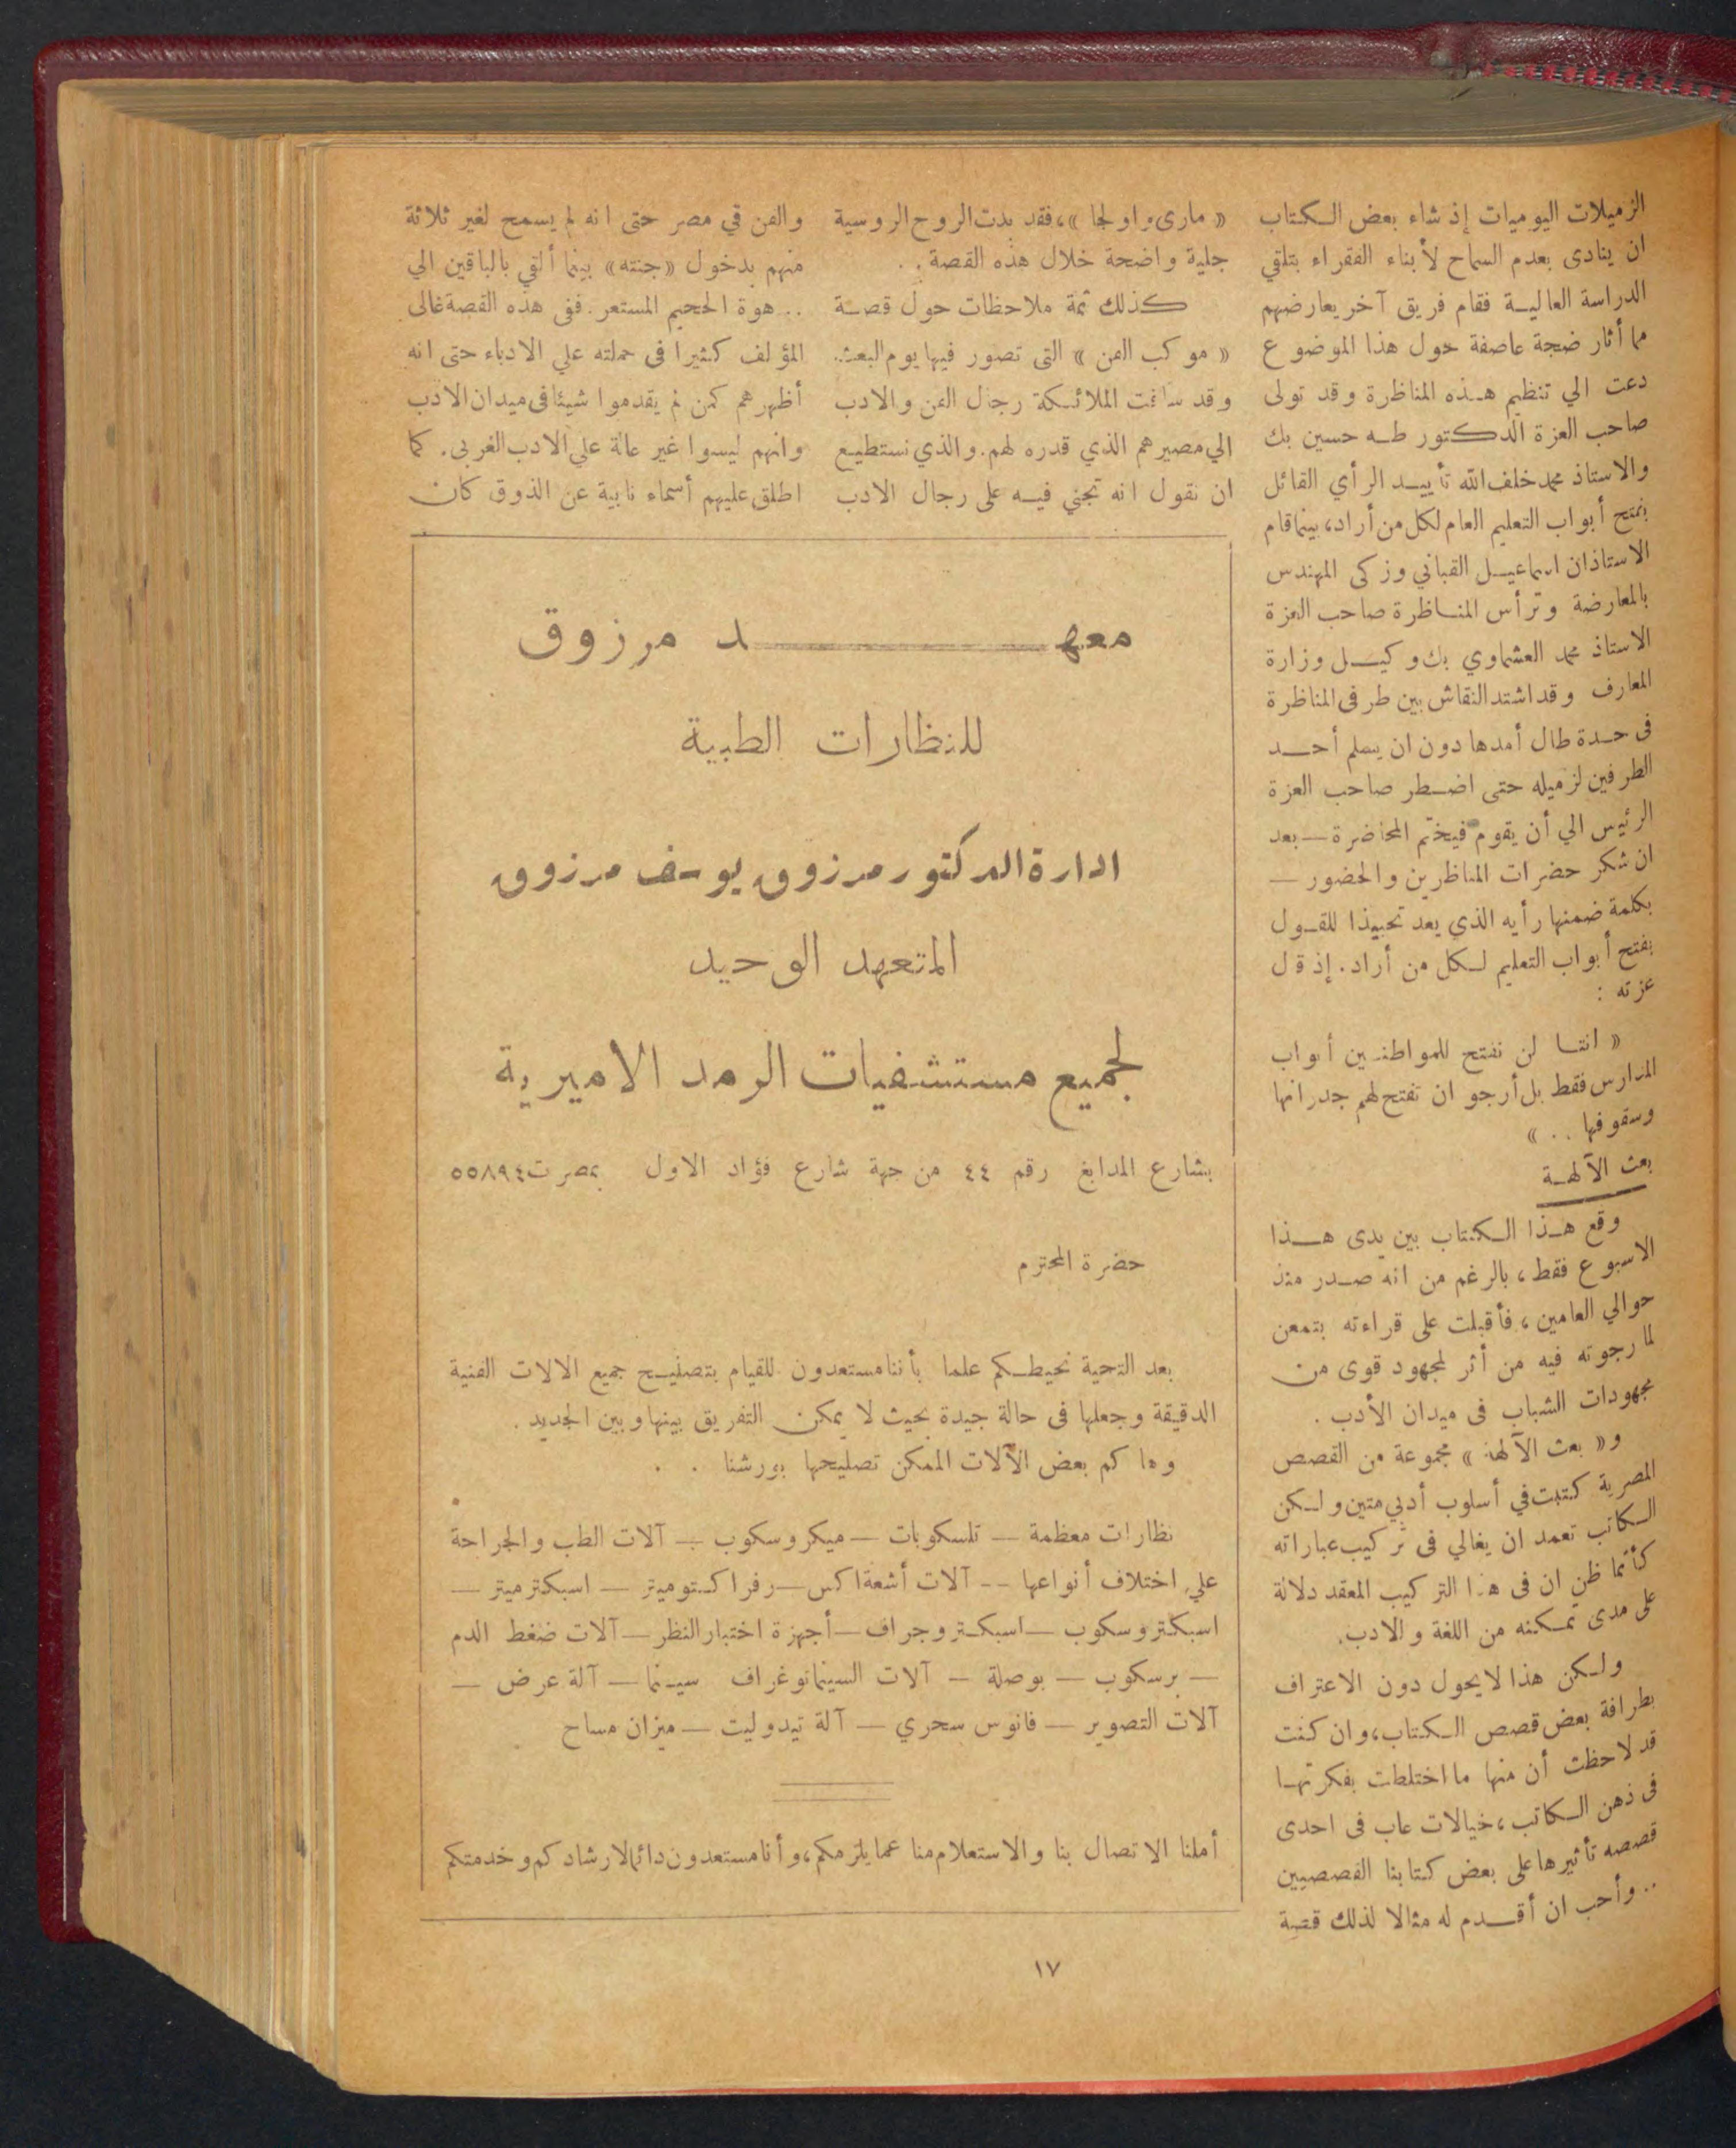 الزميلات اليوميات إذ شاء بعض الكتاب
ان ينادى بعدم السماح لأبناء الفقراء بتلقي
الدراسة العالية فقام فريق آخر يعارضهم
مما أثار ضجة عاصفة حول هذا الموضوع
دعت الي تنظيم هذه المناظرة وقد تولى
صاحب العزة الدكتور طه حسين بك
والاستاذ محمد خلف الله تأييد الرأي القائل
بفتح أبواب التعليم العام لكل من أراد، بينما قام
الاستاذان اسماعيل القباني وزكى المهندس
بالمعارضة وترأس المناظرة صاحب العزة
الاستاذ محمد العشماوي بك وكيل وزارة
المعارف وقد اشتد النقاش بين طرفى المناظرة
فى حدة طال أمدها دون ان يسلم أحد
الطرفين لزميله حتى اضطر صاحب العزة
الرئيس الي أن يقوم فيختم المحاضرة — بعد
ان شكر حضرات المناظرين والحضور —
بكلمة ضمنها رأيه الذي يعد تحبيذا للقول
بفتح أبواب التعليم لكل من أراد. إذ قال
عزته :
« اننا لن نفتح للمواطنين أبواب
المدارس فقط بل أرجو ان تفتح لهم جدرانها
وسقوفها . . »
بعث الآلهة
وقع هذا الكتاب بين يدى هذا
الاسبوع فقط، بالرغم من انه صدر منذ
حوالي العامين، فأقبلت على قراءته بتمعن
لما رجوته فيه من أثر لمجهود قوى من
مجهودات الشباب فى ميدان الأدب .
و« بعث الآلهة » مجموعة من القصص
المصرية كتبت في أسلوب أدبي متين ولكن
الكاتب تعمد ان يغالي فى تركيب عباراته
كأنما ظن ان فى هذا التركيب المعقد دلالة
على مدى تمكنه من اللغة والادب.
ولكن هذا لا يحول دون الاعتراف
بطرافة بعض قصص الكتاب، وان كنت
قد لاحظت أن منها ما اختلطت بفكرتها
فى ذهن الكاتب، خيالات عاب فى احدى
قصصه تأثيرها على بعض كتابنا القصصيين
.. وأحب ان أقدم له مثالا لذلك قصة
« مارى واولجا »، فقد بدت الروح الروسية
جلية واضحة خلال هذه القصة . .
كذلك ثمة ملاحظات حول قصة
« موكب الفن » التى تصور فيها يوم البعث.
وقد ساقت الملائكة رجال الفن والادب
الي مصيرهم الذي قدره لهم. والذي نستطيع
ان نقول انه تجني فيه على رجال الادب
والفن في مصر حتى انه لم يسمح لغير ثلاثة
منهم بدخول «جنته» بينما ألقي بالباقين الي
.. هوة الجحيم المستعر. ففى هذه القصة غالى
المؤلف كثيرا فى حملته علي الادباء حتى انه
أظهرهم كمن لم يقدموا شيئا فى ميدان الادب
وانهم ليسوا غير عالة علي الادب الغربى. كما
اطلق عليهم أسماء نابية عن الذوق كان
معهد مرزوق
للنظارات الطبية
ادارة الدكتور مرزوق يوسف مرزوق
المتعهد الوحيد
لجميع مستشفيات الرمد الاميرية
بشارع المدابغ رقم ٤٤ من جهة شارع فؤاد الاول بمصر ت ٥٥٨٩٤
حضرة المحترم
بعد التحية نحيطكم علما بأننا مستعدون للقيام بتصليح جميع الالات الفنية
الدقيقة وجعلها فى حالة جيدة بحيث لا يمكن التفريق بينها وبين الجديد .
وها كم بعض الآلات الممكن تصليحها بورشنا . .
نظارات معظمة — تلسكوبات — ميكروسكوب — آلات الطب والجراحة
علي اختلاف أنواعها -- آلات أشعة اكس — رفراكتوميتر — اسبكترميتر —
اسبكتروسكوب — اسبكتروجراف — أجهزة اختبار النظر — آلات ضغط الدم
— برسكوب — بوصلة — آلات السينماتوغراف سينما — آلة عرض —
آلات التصوير — فانوس سحري — آلة تيدوليت — ميزان مساح
أملنا الاتصال بنا والاستعلام منا عما يلزمكم، وأنا مستعدون دائما لارشادكم وخدمتكم
١٧